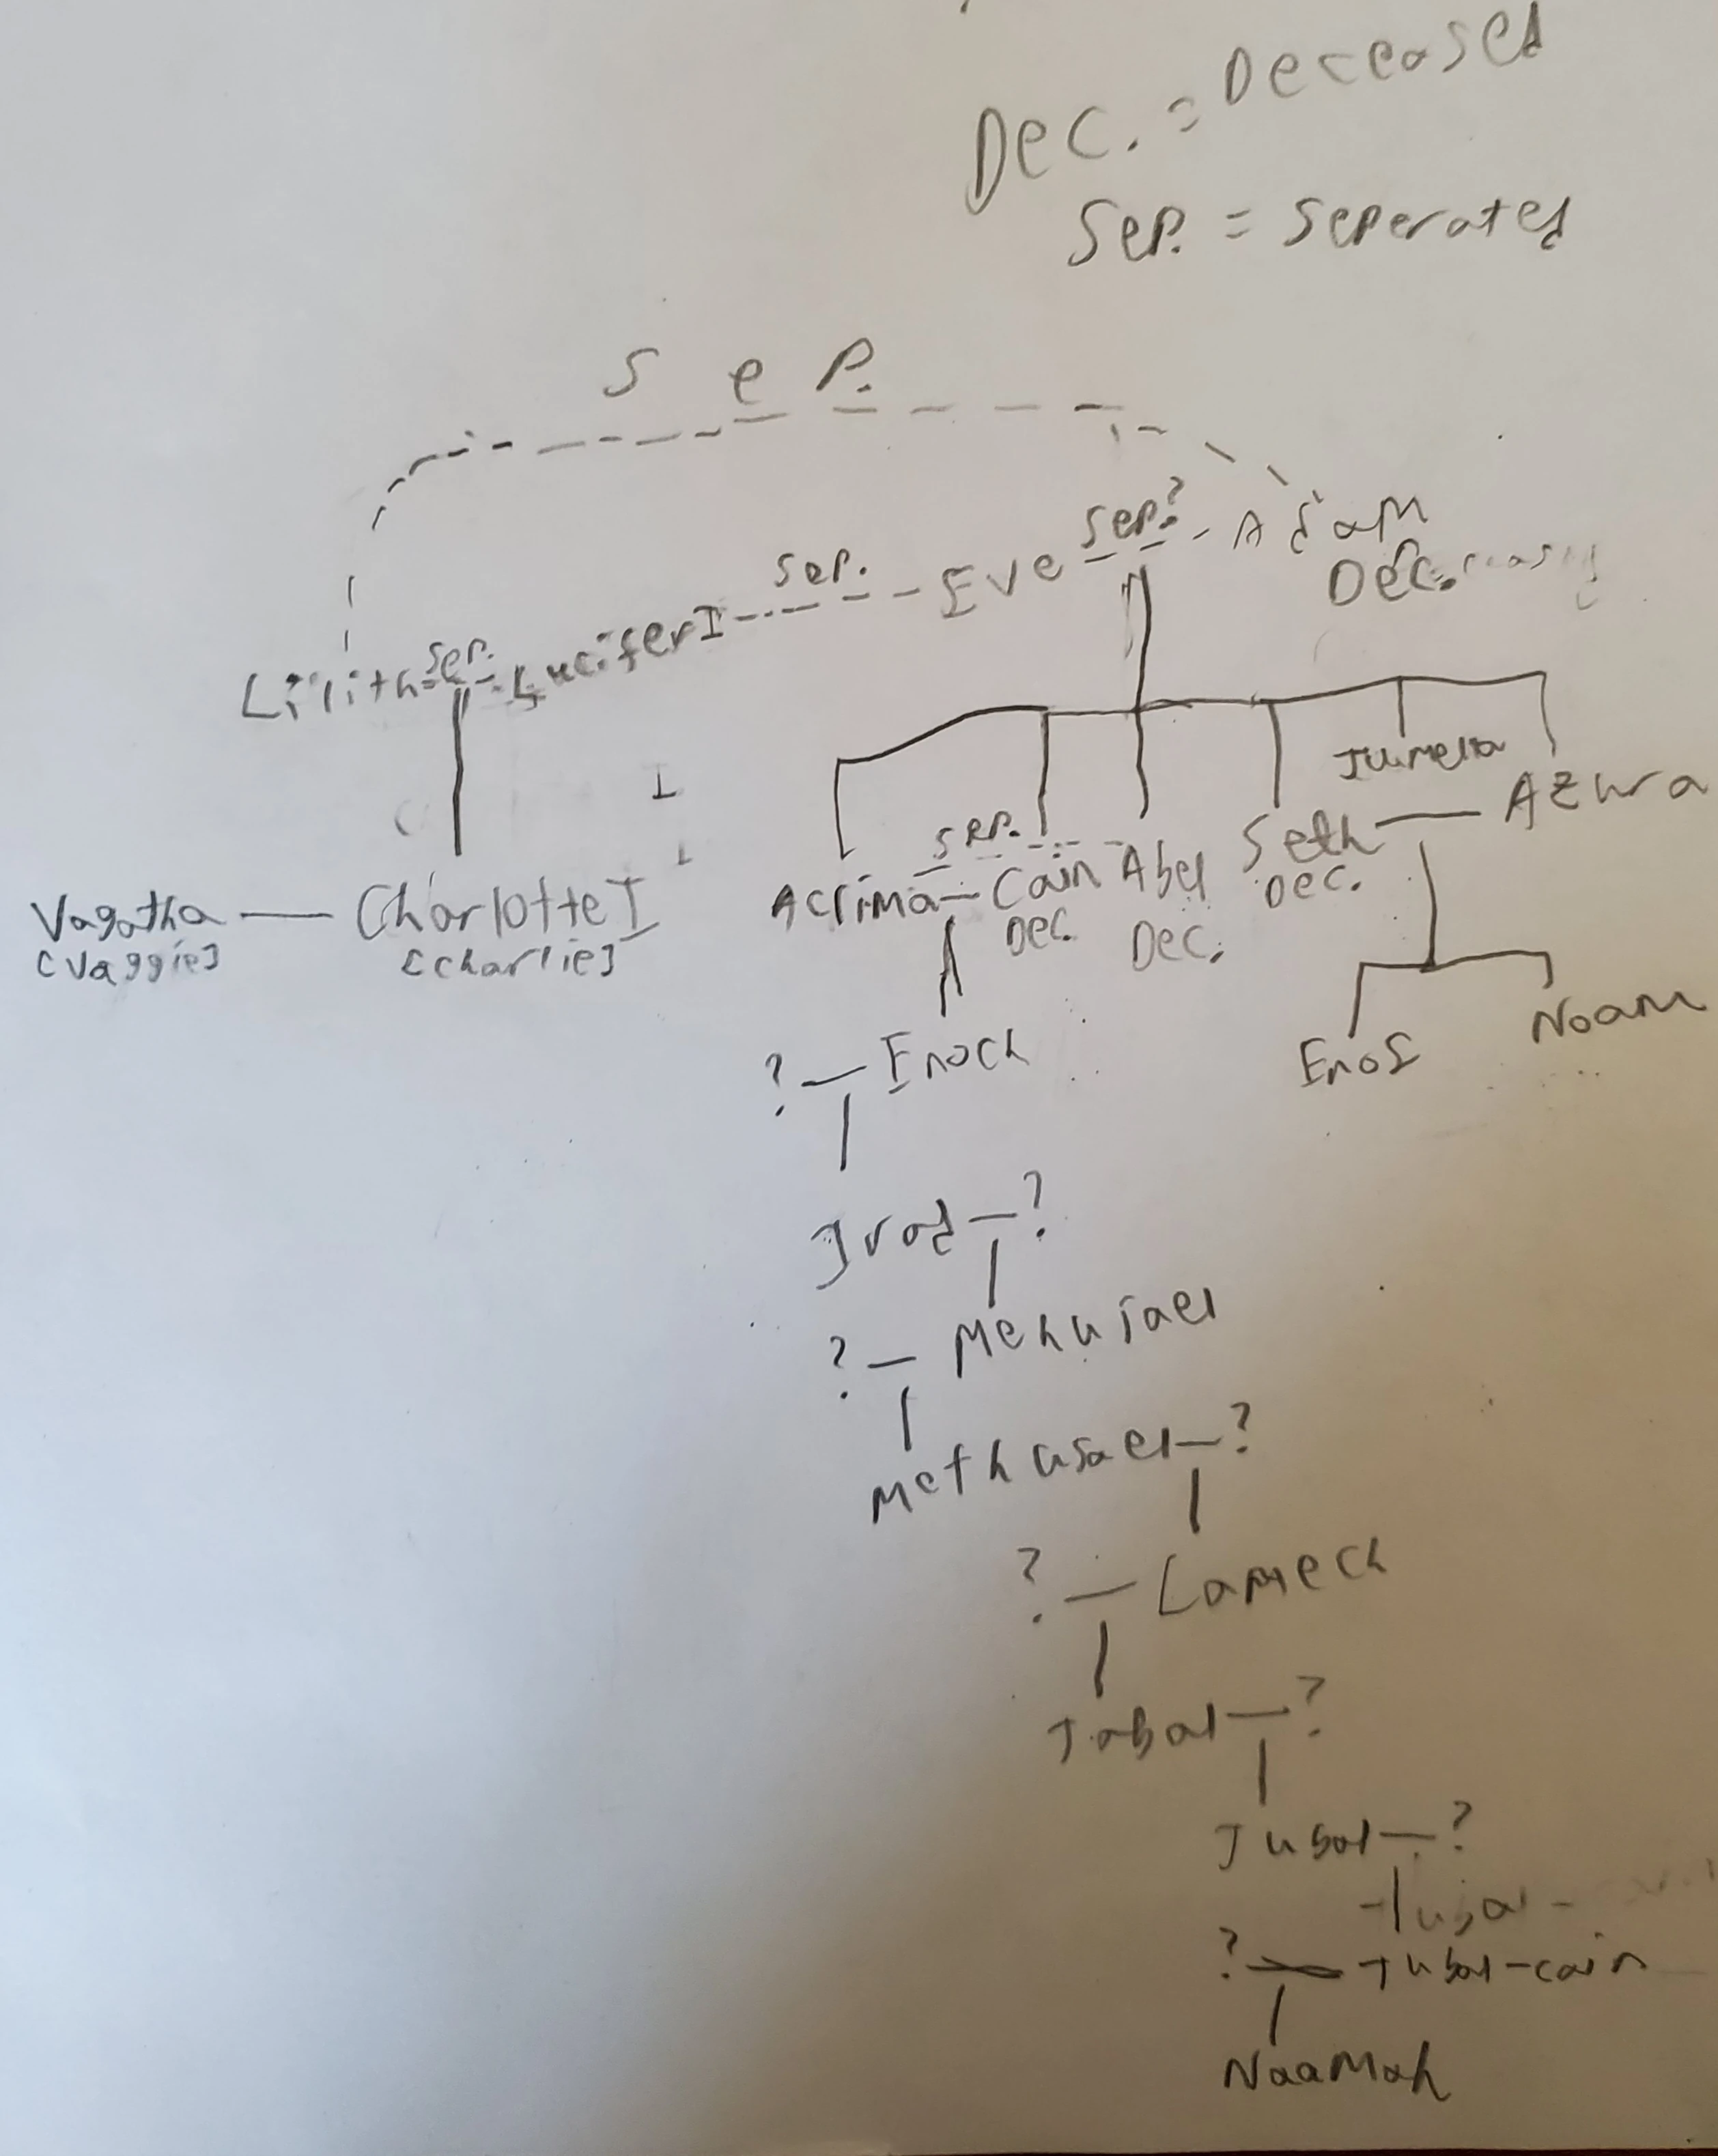 Dec. = Deceased
Sep. = Seperated
Sep.
Lilith Sep. Lucifer I Sep. Eve Sep.? Adam
Dec.
Vagatha — Charlotte I
[Vaggie] [Charlie]
I
Jumella
Azura
Sep.
Aclima — Cain Abel Seth
Dec. Dec. Dec.
Enos Noam
? — Enoch
Irad — ?
? — Mehujael
Methusael — ?
? — Lameck
Jabal — ?
Jubal — ?
Tubal -
? — Tubal-cain
Naamah